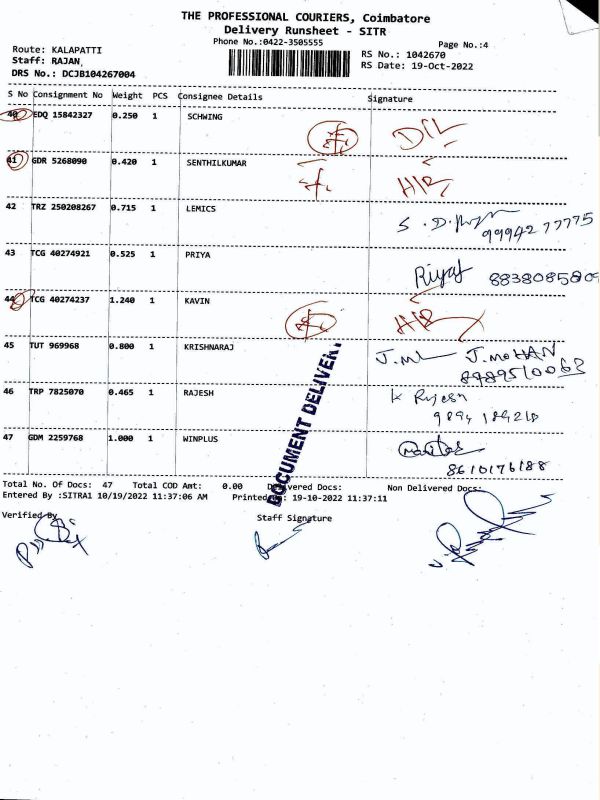 THE PROFESSIONAL COURIERS, Coimbatore
Delivery Runsheet - SITR
Phone No.:0422-3505555
Page No.:4
Route: KALAPATTI
RS No.: 1042670
Staff: RAJAN,
RS Date: 19-Oct-2022
DRS No.: DCJB104267004
S No Consignment No Weight PCS Consignee Details Signature
40 EDQ 15842327 0.250 1 SCHWING
41 GDR 5268090 0.420 1 SENTHILKUMAR
42 TRZ 250208267 0.715 1 LEMICS
9994277775
43 TCG 40274921 0.525 1 PRIYA
Riyaf 8838085809
44 TCG 40274237 1.240 1 KAVIN
45 TUT 969968 0.800 1 KRISHNARAJ
J.MOHAN
8989510062
46 TRP 7825070 0.465 1 RAJESH
K Rajesh
47 GDM 2259768 1.000 1 WINPLUS
8610176188
DOCUMENT DELIVERY
Total No. Of Docs: 47 Total COD Amt: 0.00 Delivered Docs: Non Delivered Docs:
Entered By :SITRA1 10/19/2022 11:37:06 AM Printed On: 19-10-2022 11:37:11
Verified By
Staff Signature